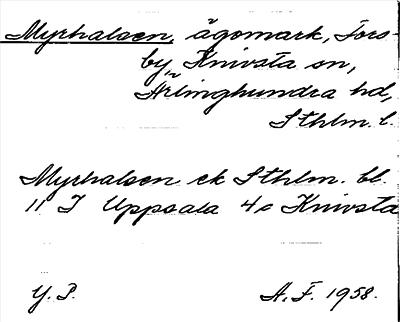 Myrhalsen, ägomark, Fors-
by, Knivsta sn,
Ärlinghundra hd,
Sthlm. l.
Myrhalsen ek Sthlm. bl.
11 I Uppsala 4e Knivsta
Y. P. A. F. 1958.